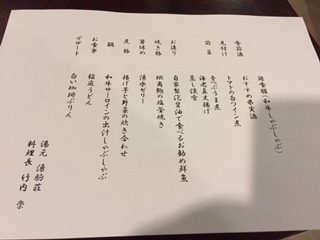 遊食膳(和牛しゃぶしゃぶ)
食前酒 おすすめ果実酒
先付け トマトの白ワイン煮
前菜 青つぶうま煮
海老真丈揚げ
蒸し淡雪
お造り 自家製泡醤油で食べるお勧め鮮魚
焼き物 塩釜焼き
箸休め 湯水ゼリー
煮物 揚げ茄子と野菜の炊き合わせ
鍋 和牛サーロインの出汁しゃぶしゃぶ
お食事 稲庭うどん
デザート 白い珈琲ぷりん
湯元 湯駒荘
料理長 竹内 崇